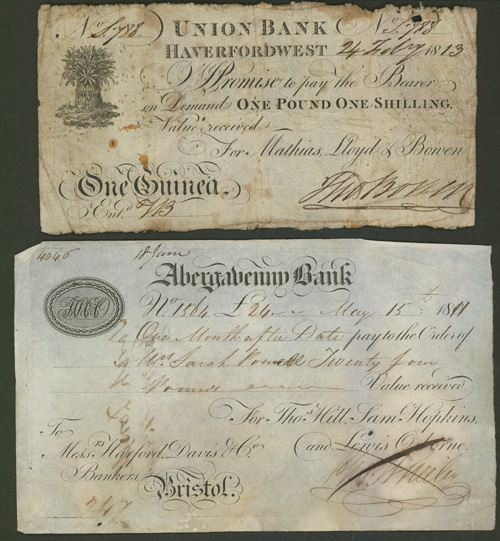 No S.788 No S.788
UNION BANK
HAVERFORDWEST 24 Feby 1813
I Promise to pay the Bearer
on Demand ONE POUND ONE SHILLING.
Value received
For Mathias, Lloyd & Bowen
One Guinea.
Entd.
4046 18 June
Abergavenny Bank
No 1564 £24 May 15th 1811
One Month after Date pay to the Order of
Mrs Sarah Powell Twenty four
Pounds Value received.
For Thos. Hill, Saml. Hopkins,
To and Lewis Osborne.
Messrs Harford, Davis & Co
Bankers
Bristol.
747